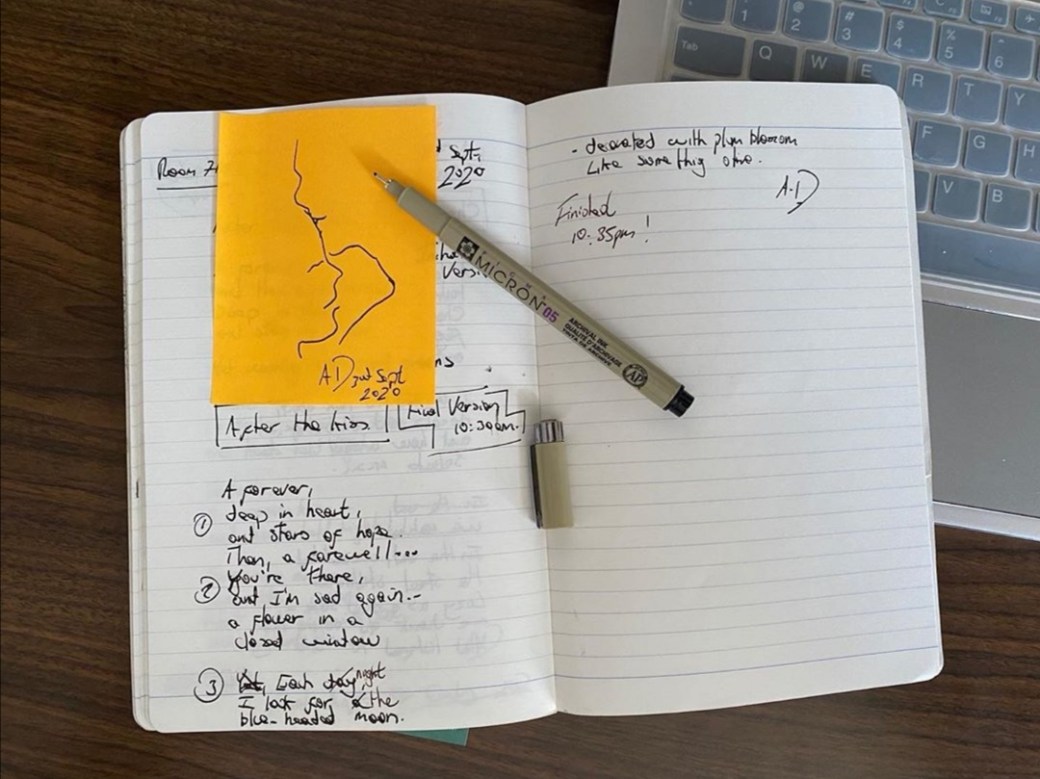 Room
Sept
2020
Versi
ns
A.D 2nd Sept
2020
After the kiss
Final Version
10:30am.
A forever,
① deep in heart,
and stars of hope.
Then, a farewell...
② You're there,
and I'm sad again..
a flower in a
closed window
③ Each night
I look for the
blue-headed moon.
- decorated with plum blossom
Like something
A.D
Finished
10:35pm!
MICRON 05
ARCHIVAL INK
QUALITÉ D'ARCHIVAGE
TINTA DE ARCHIVO
AP
1
@ 2
# 3
$ 4
% 5
6
Tab Q W E R T Y
F G H
V B